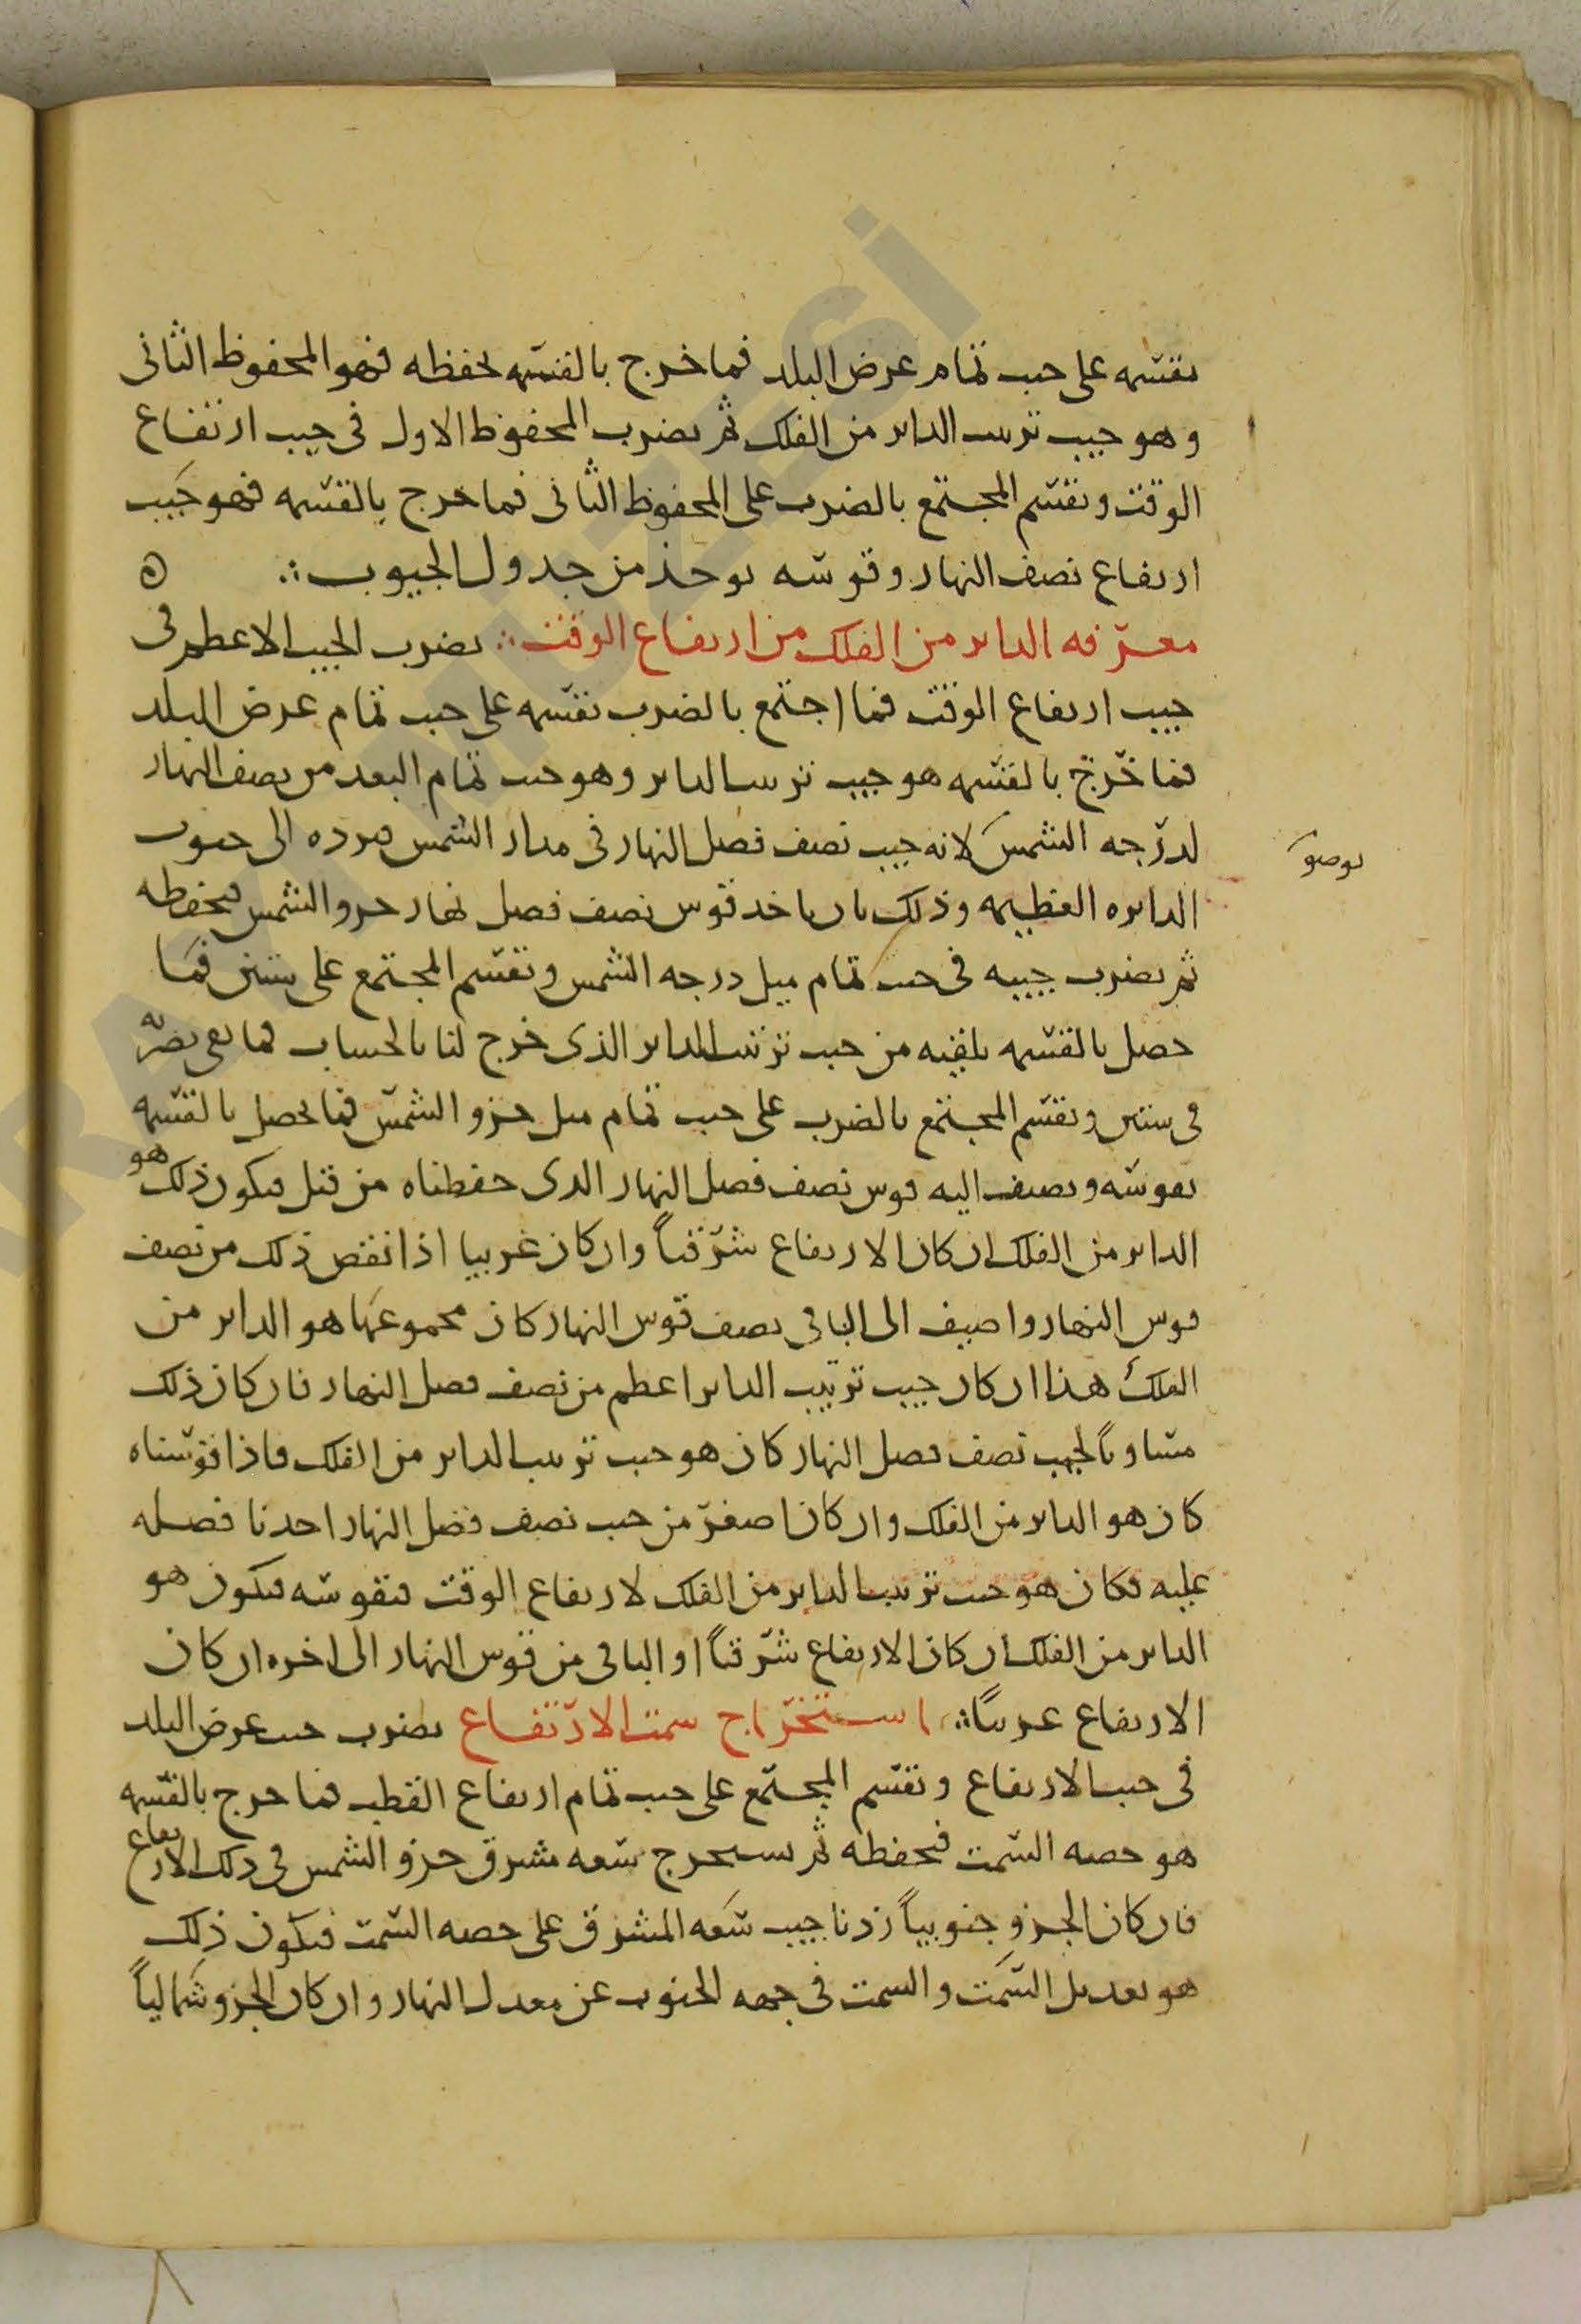 نقسمه على جيب تمام عرض البلد فما خرج بالقسمه نحفظه فهو المحفوظ الثانى
وهو جيب ترتيب الداير من الفلك ثم نضرب المحفوظ الاول فى جيب ارتفاع
الوقت ونقسم المجتمع بالضرب على المحفوظ الثانى فما خرج بالقسمه فهو جيب
ارتفاع نصف النهار وقوسه يوخذ من جدول الجيوب ه
معرفه الداير من الفلك من ارتفاع الوقت نضرب الجيب الاعظم فى
جيب ارتفاع الوقت فما اجتمع بالضرب نقسمه على جيب تمام عرض البلد
فما خرج بالقسمه هو جيب ترتيب الداير وهو جيب تمام البعد من نصف النهار
لدرجه الشمس لانه جيب نصف فصل النهار فى مدار الشمس فنرده الى جيوب
الدايره العظيمه وذلك بان ناخد قوس نصف فصل نهار جزو الشمس فنحفظه
ثم نضرب جيبه فى جيب تمام ميل درجه الشمس ونقسم المجتمع على ستين فما
حصل بالقسمه نلقيه من جيب ترتيب الداير الذى خرج لنا بالحساب فما بقى نضربه
فى ستين ونقسم المجتمع بالضرب على جيب تمام ميل جزو الشمس فما يحصل بالقسمه
نقوسه ونضيف اليه قوس نصف فصل النهار الدى حفظناه من قبل فيكون ذلك هو
الداير من الفلك ان كان الارتفاع شرقياً وان كان غربيا اذا نقص ذلك من نصف
قوس النهار واضيف الى الباقى نصف قوس النهار كان مجموعها هو الداير من
الفلك هذا ان كان جيب ترتيب الداير اعظم من نصف فصل النهار فان كان ذلك
مساوياً لجيب نصف فصل النهار كان هو جيب ترتيب الداير من الفلك فاذا قوسناه
كان هو الداير من الفلك وان كان اصغر من جيب نصف فضل النهار اخدنا فصله
عليه فكان هو جيب ترتيب الداير من الفلك لارتفاع الوقت فنقوسه فيكون هو
الداير من الفلك ان كان الارتفاع شرقياً او الباقى من قوس النهار الى اخره ان كان
الارتفاع غربياً استخراج سمت الارتفاع نضرب جيب عرض البلد
فى جيب الارتفاع ونقسم المجتمع على جيب تمام ارتفاع القطب فما خرج بالقسمه
هو حصه السمت فنحفظه ثم نستخرج سعه مشرق جزو الشمس فى ذلك الارتفاع
فان كان الجزو جنوبياً زدنا جيب سعه المشرق على حصه السمت فيكون ذلك
هو تعديل السمت والسمت فى جهه الجنوب عن معدل النهار وان كان الجزو شمالياً